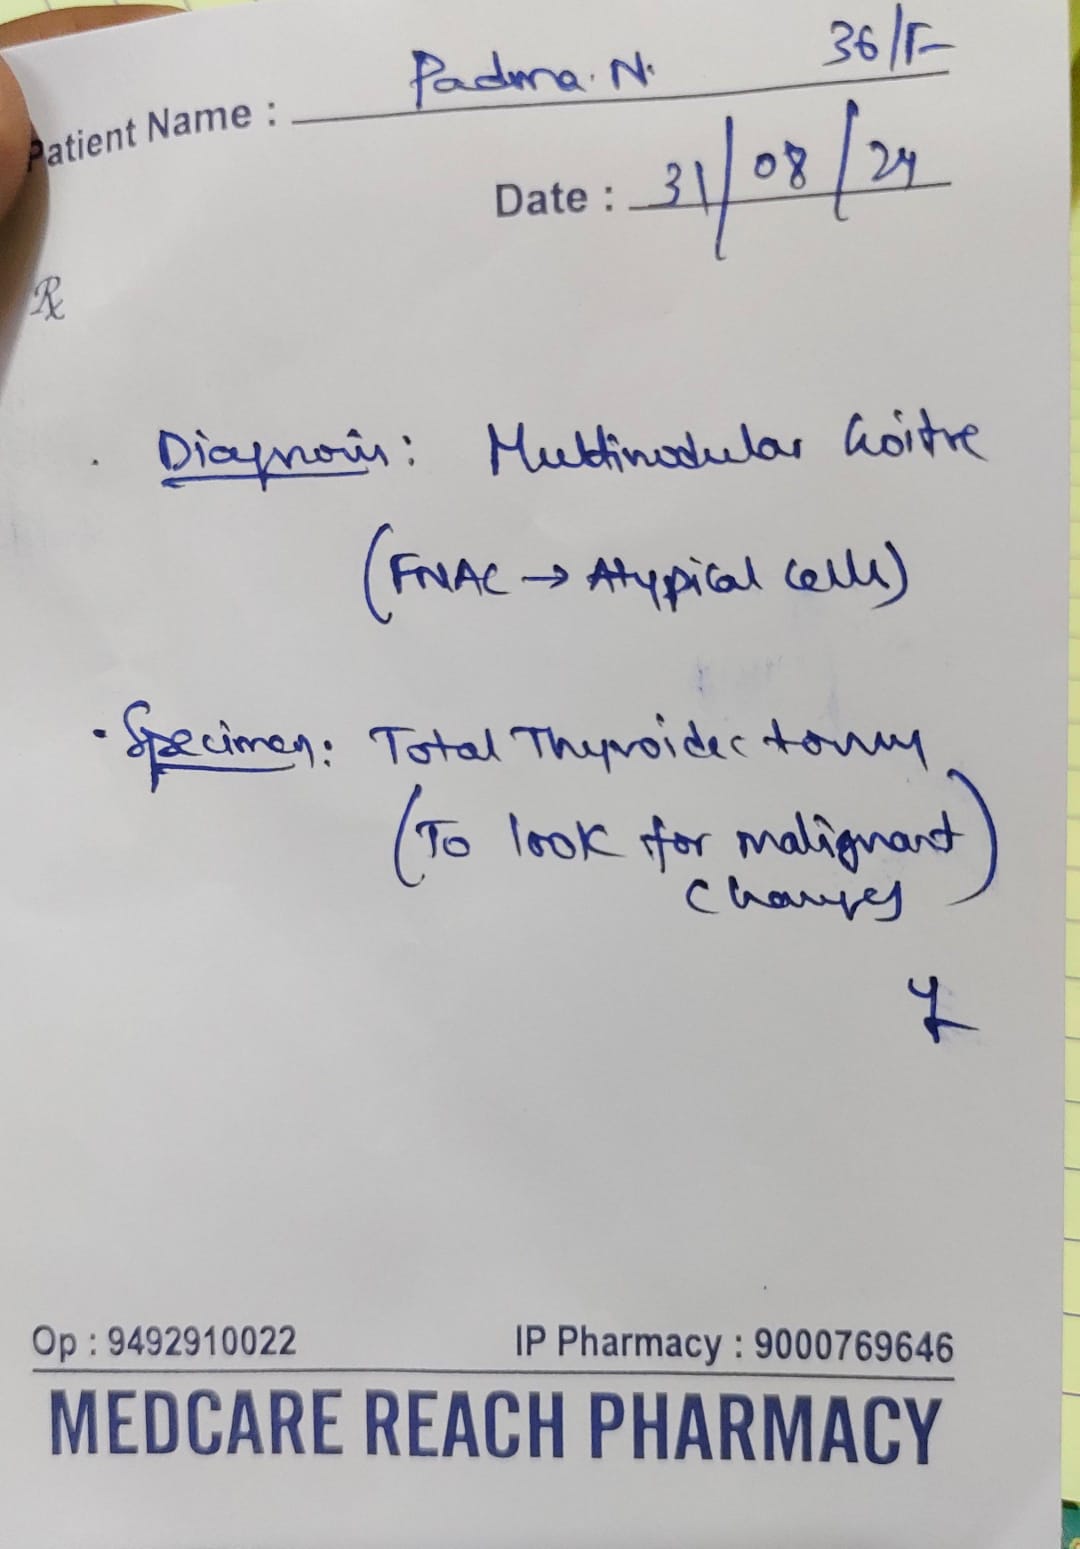 Padma. N. 36/F
Patient Name :
Date : 31/08/24
Rx
Diagnosis: Multinodular Goitre
(FNAC → Atypical cells)
• Specimen: Total Thyroidectomy
(To look for malignant
changes)
Op : 9492910022 IP Pharmacy : 9000769646
MEDCARE REACH PHARMACY